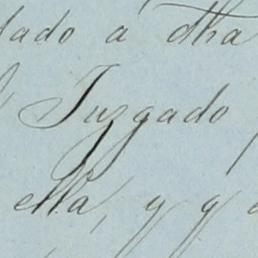 lado a dha
Juzgado
ella, y q